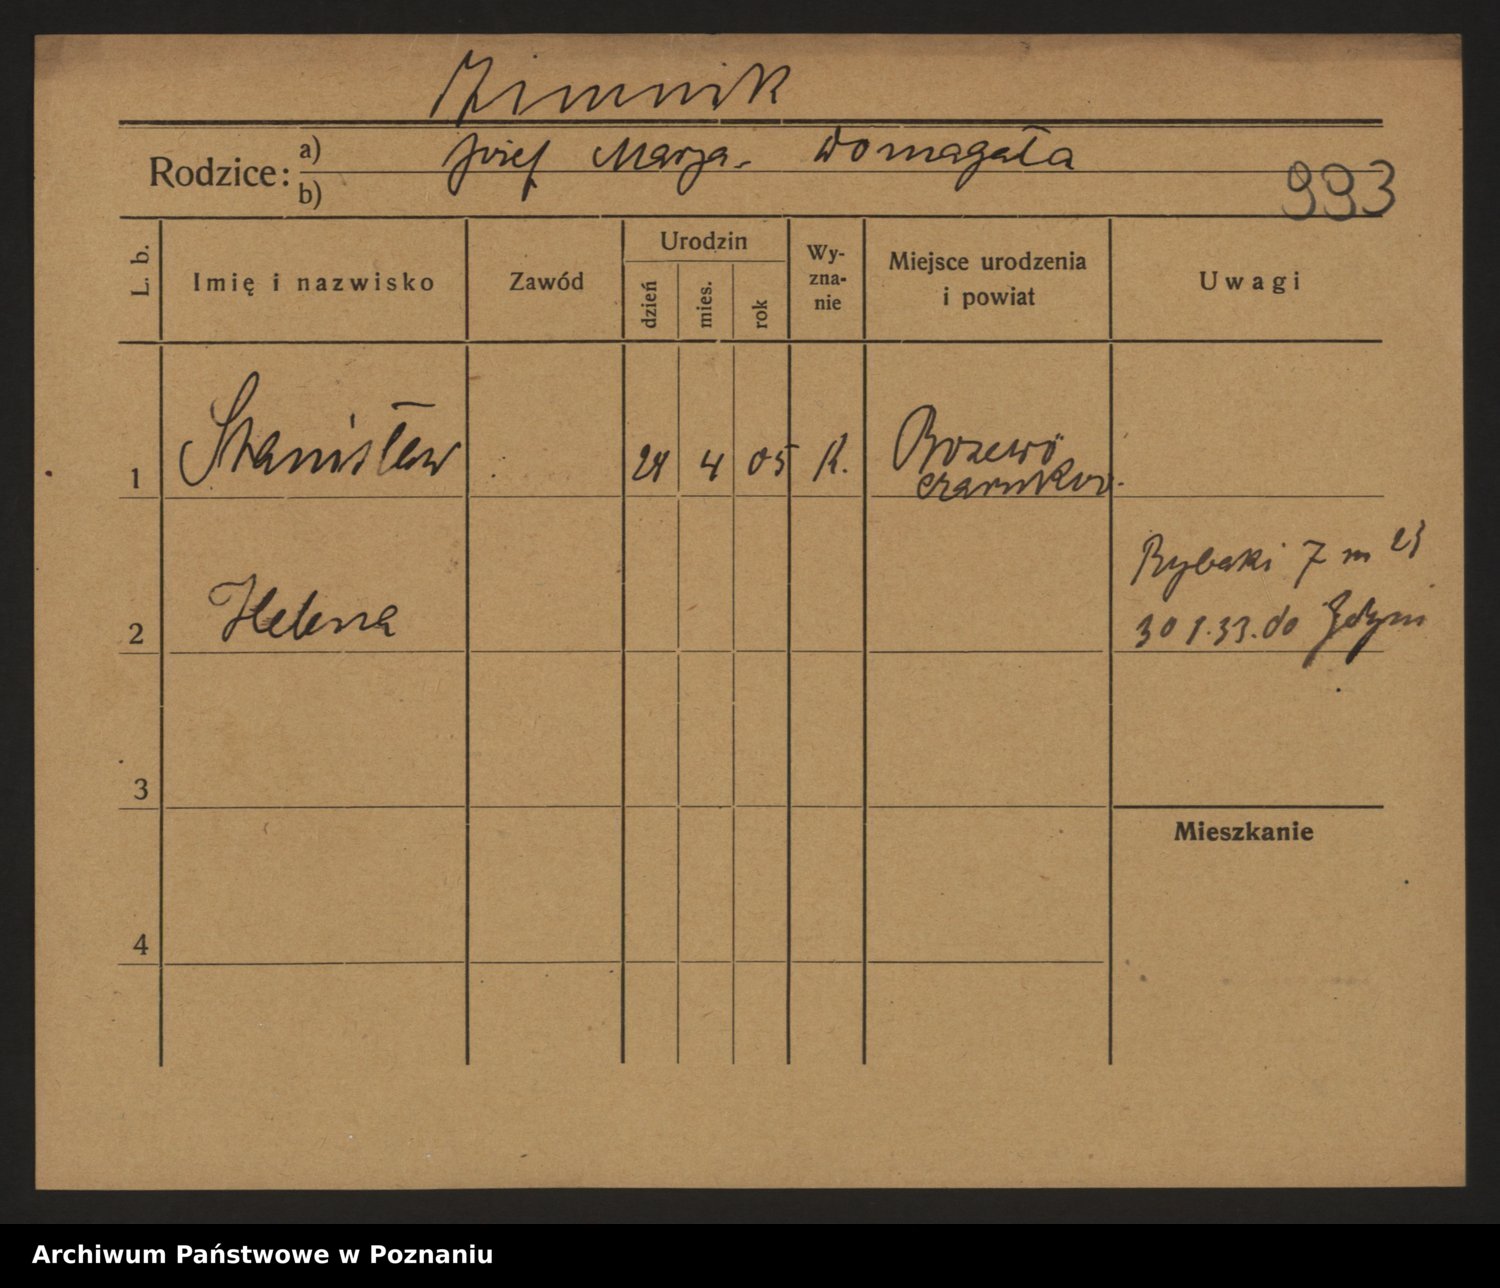 Zimnik
Rodzice: a) Józef Marja. Domagała
b)
993
L. b. Imię i nazwisko Zawód Urodzin dzień mies. rok Wy-zna-nie Miejsce urodzenia i powiat Uwagi
1 Stanisław 24 4 05 K. Bozewo
czarnkow.
Rybaki 7 m 23
2 Helena 30 1.33. do Gdyni
3
Mieszkanie
4
Archiwum Państwowe w Poznaniu